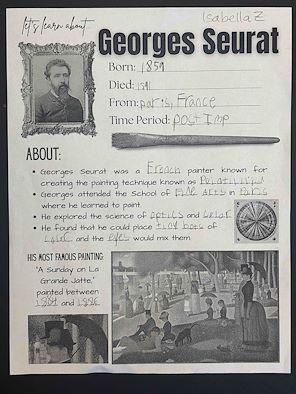 Isabella Z
let's learn about...
Georges Seurat
Born: 1859
Died: 1891
From: paris, France
Time Period: Post Imp
ABOUT:
• Georges Seurat was a French painter known for
creating the painting technique known as
• Georges attended the School of Fine Arts in Paris
where he learned to paint.
• He explored the science of optics and color
• He found that he could place tiny dots of
color and the eyes would mix them.
HIS MOST FAMOUS PAINTING:
"A Sunday on La
Grande Jatte,"
painted between
1884 and 1886